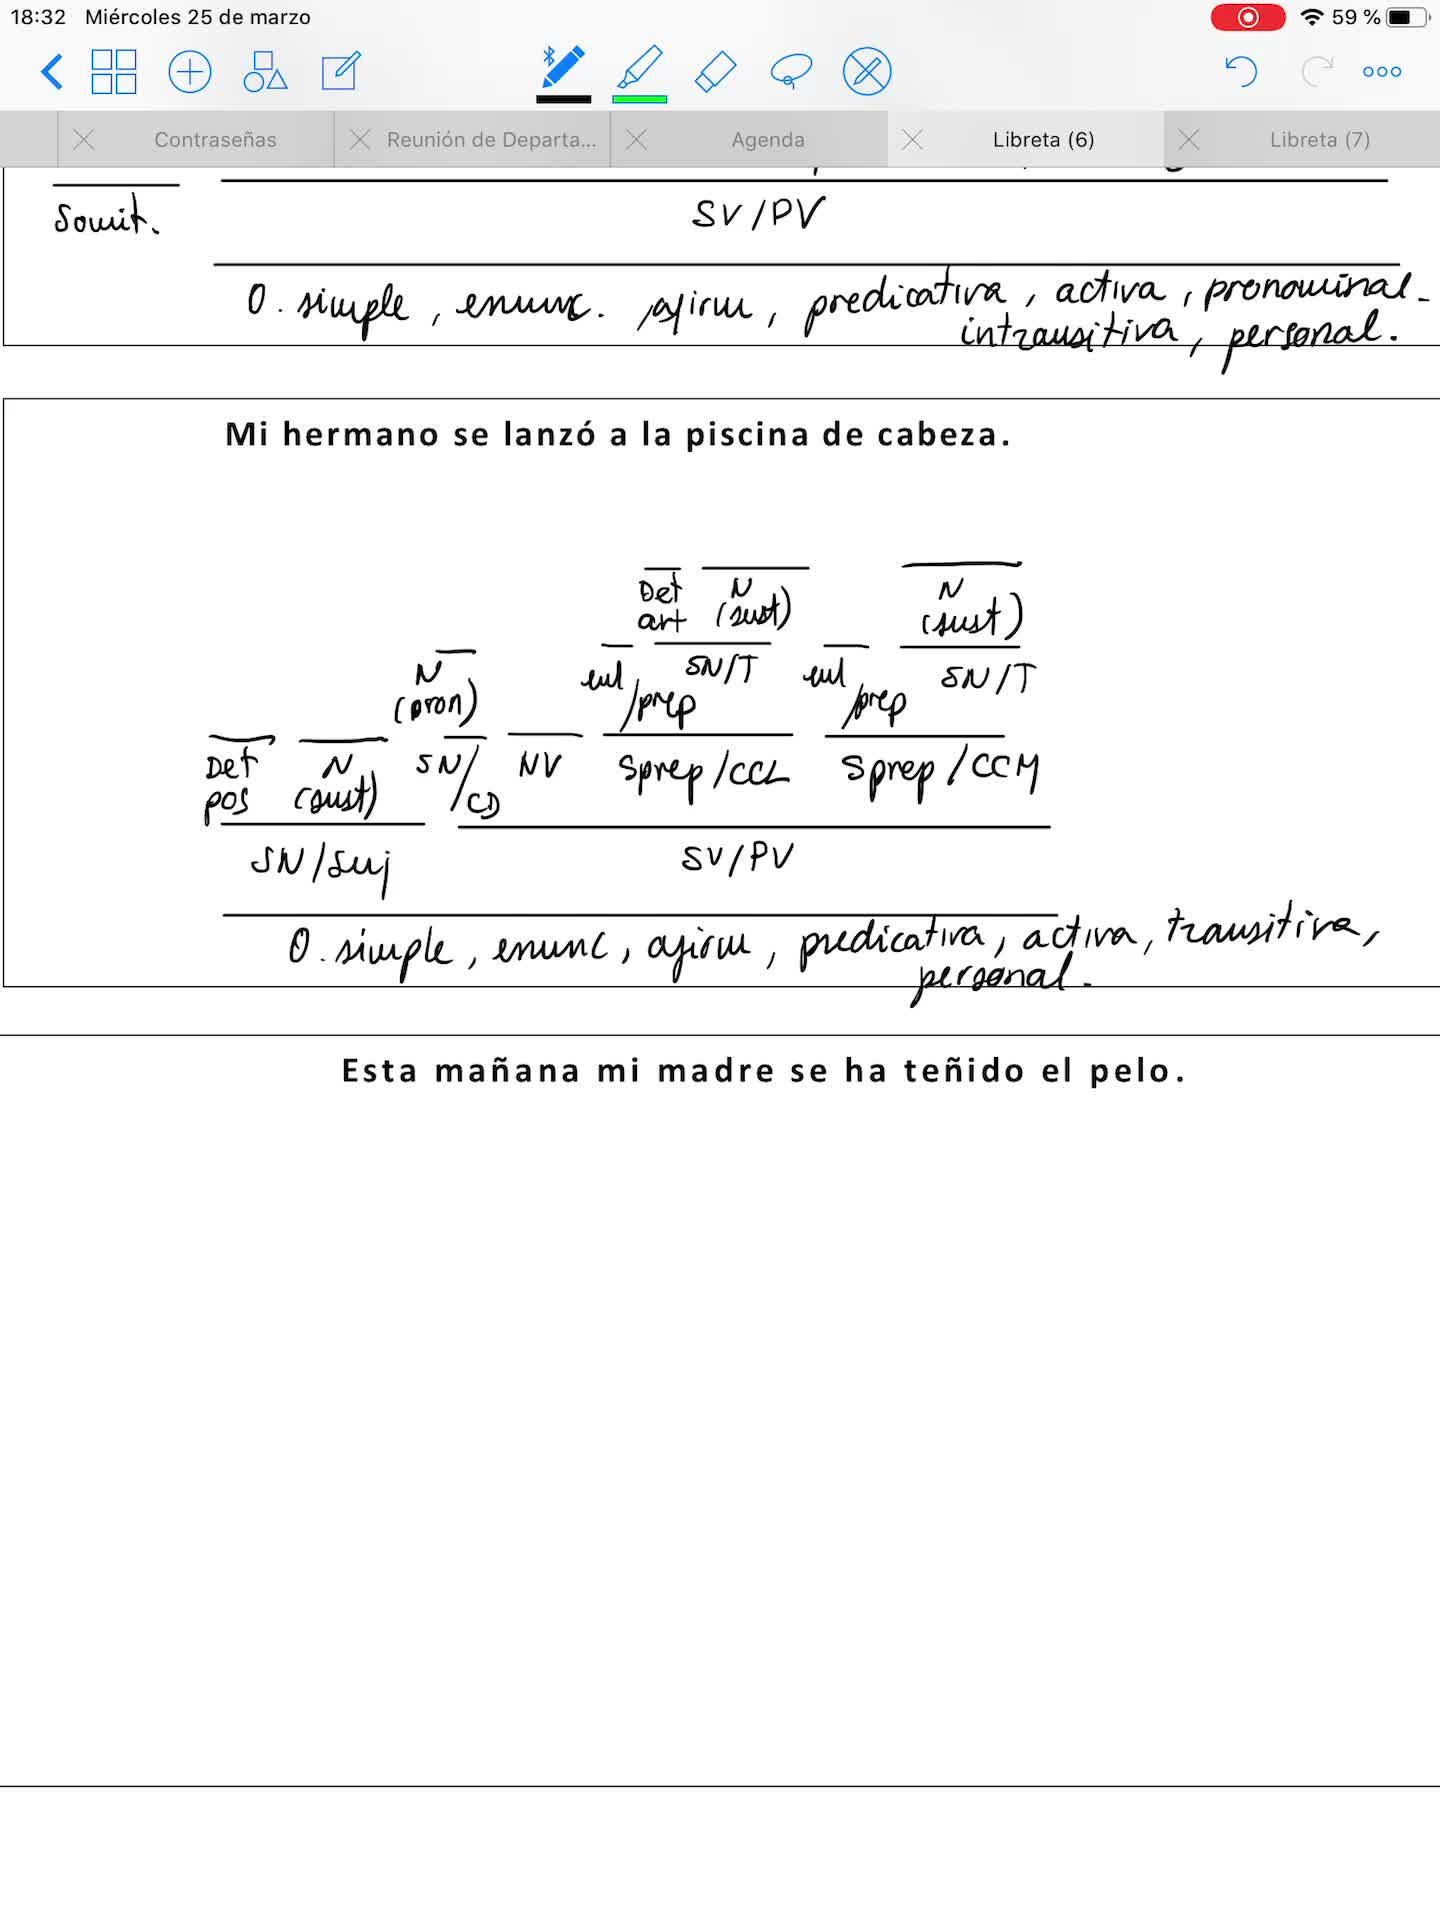 18:32 Miércoles 25 de marzo 59 %
Contraseñas Reunión de Departa... Agenda Libreta (6) Libreta (7)
Somit. SV/PV
O. simple, enunc. afirm, predicativa, activa, pronominal-
intransitiva, personal.
Mi hermano se lanzó a la piscina de cabeza.
Det N N
art (sust) (sust)
N enl SN/T enl SN/T
(pron) /prep /prep
Det N SN/ NV Sprep/CCL Sprep/CCM
pos (sust) /CD
SN/Suj SV/PV
O. simple, enunc, afirm, predicativa, activa, transitiva,
personal.
Esta mañana mi madre se ha teñido el pelo.